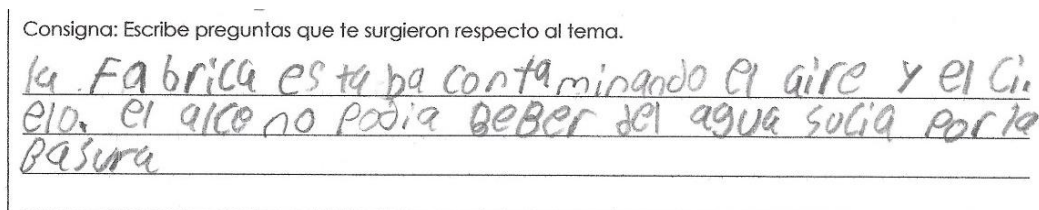 Consigna: Escribe preguntas que te surgieron respecto al tema.
la Fabrica estaba contaminando el aire y el Ci.
elo. el alce no podia BeBer del agua sucia por la
Basura